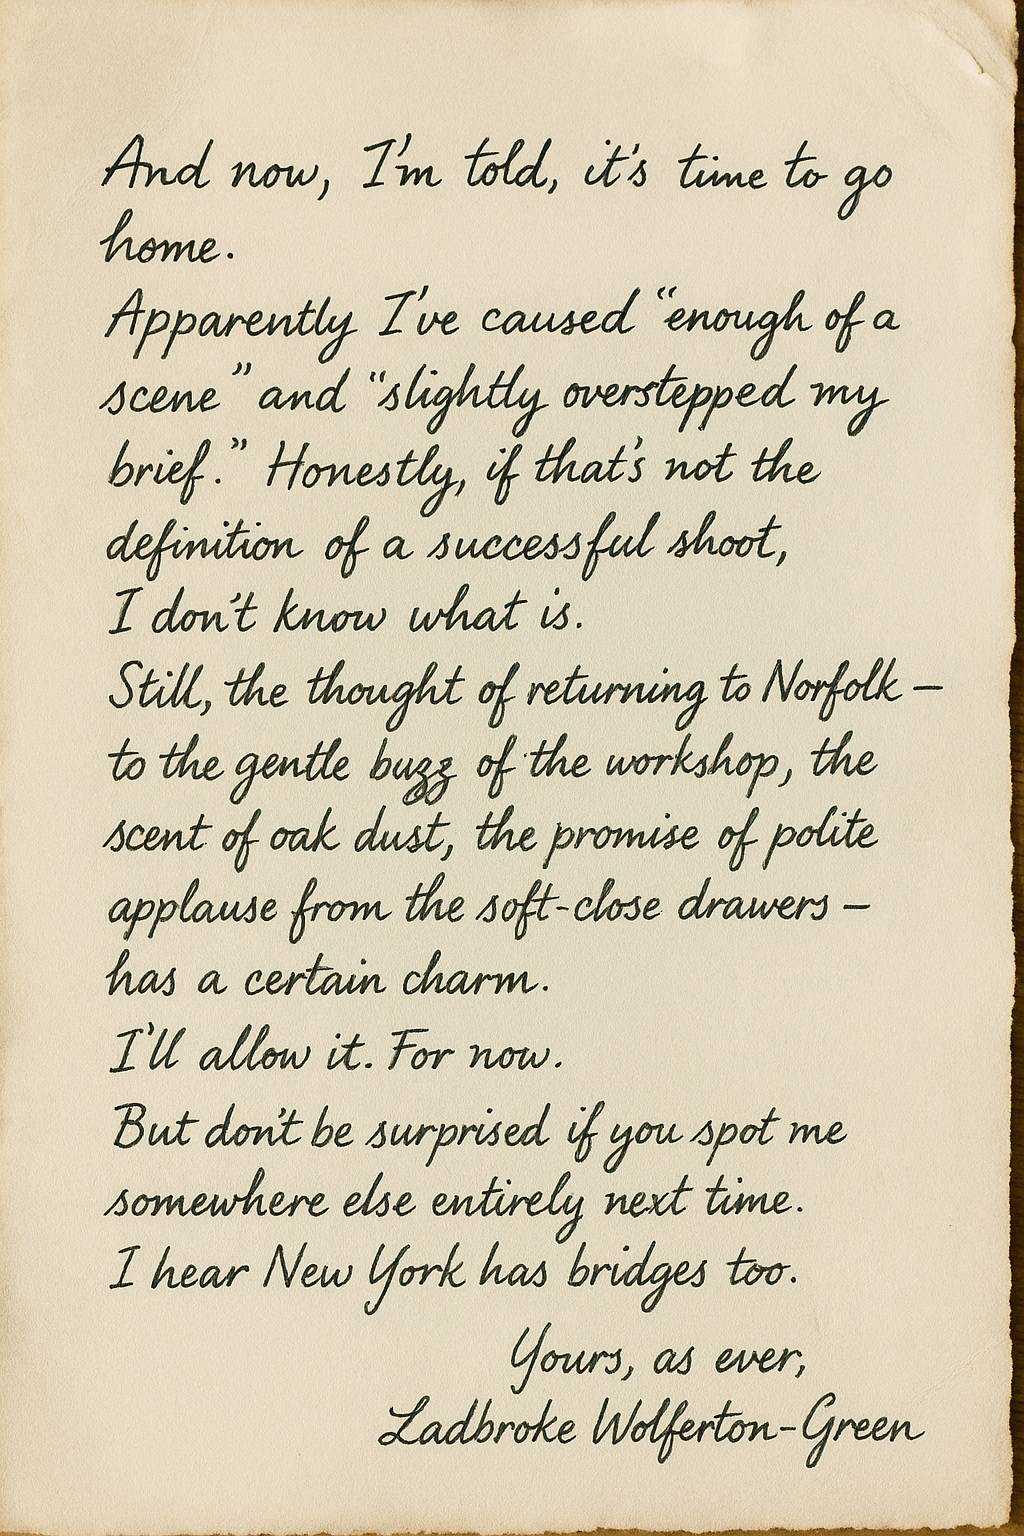 And now, I'm told, it's time to go
home.
Apparently I've caused “enough of a
scene” and “slightly overstepped my
brief.” Honestly, if that's not the
definition of a successful shoot,
I don't know what is.
Still, the thought of returning to Norfolk –
to the gentle buzz of the workshop, the
scent of oak dust, the promise of polite
applause from the soft-close drawers –
has a certain charm.
I'll allow it. For now.
But don't be surprised if you spot me
somewhere else entirely next time.
I hear New York has bridges too.
Yours, as ever,
Ladbroke Wolferton-Green